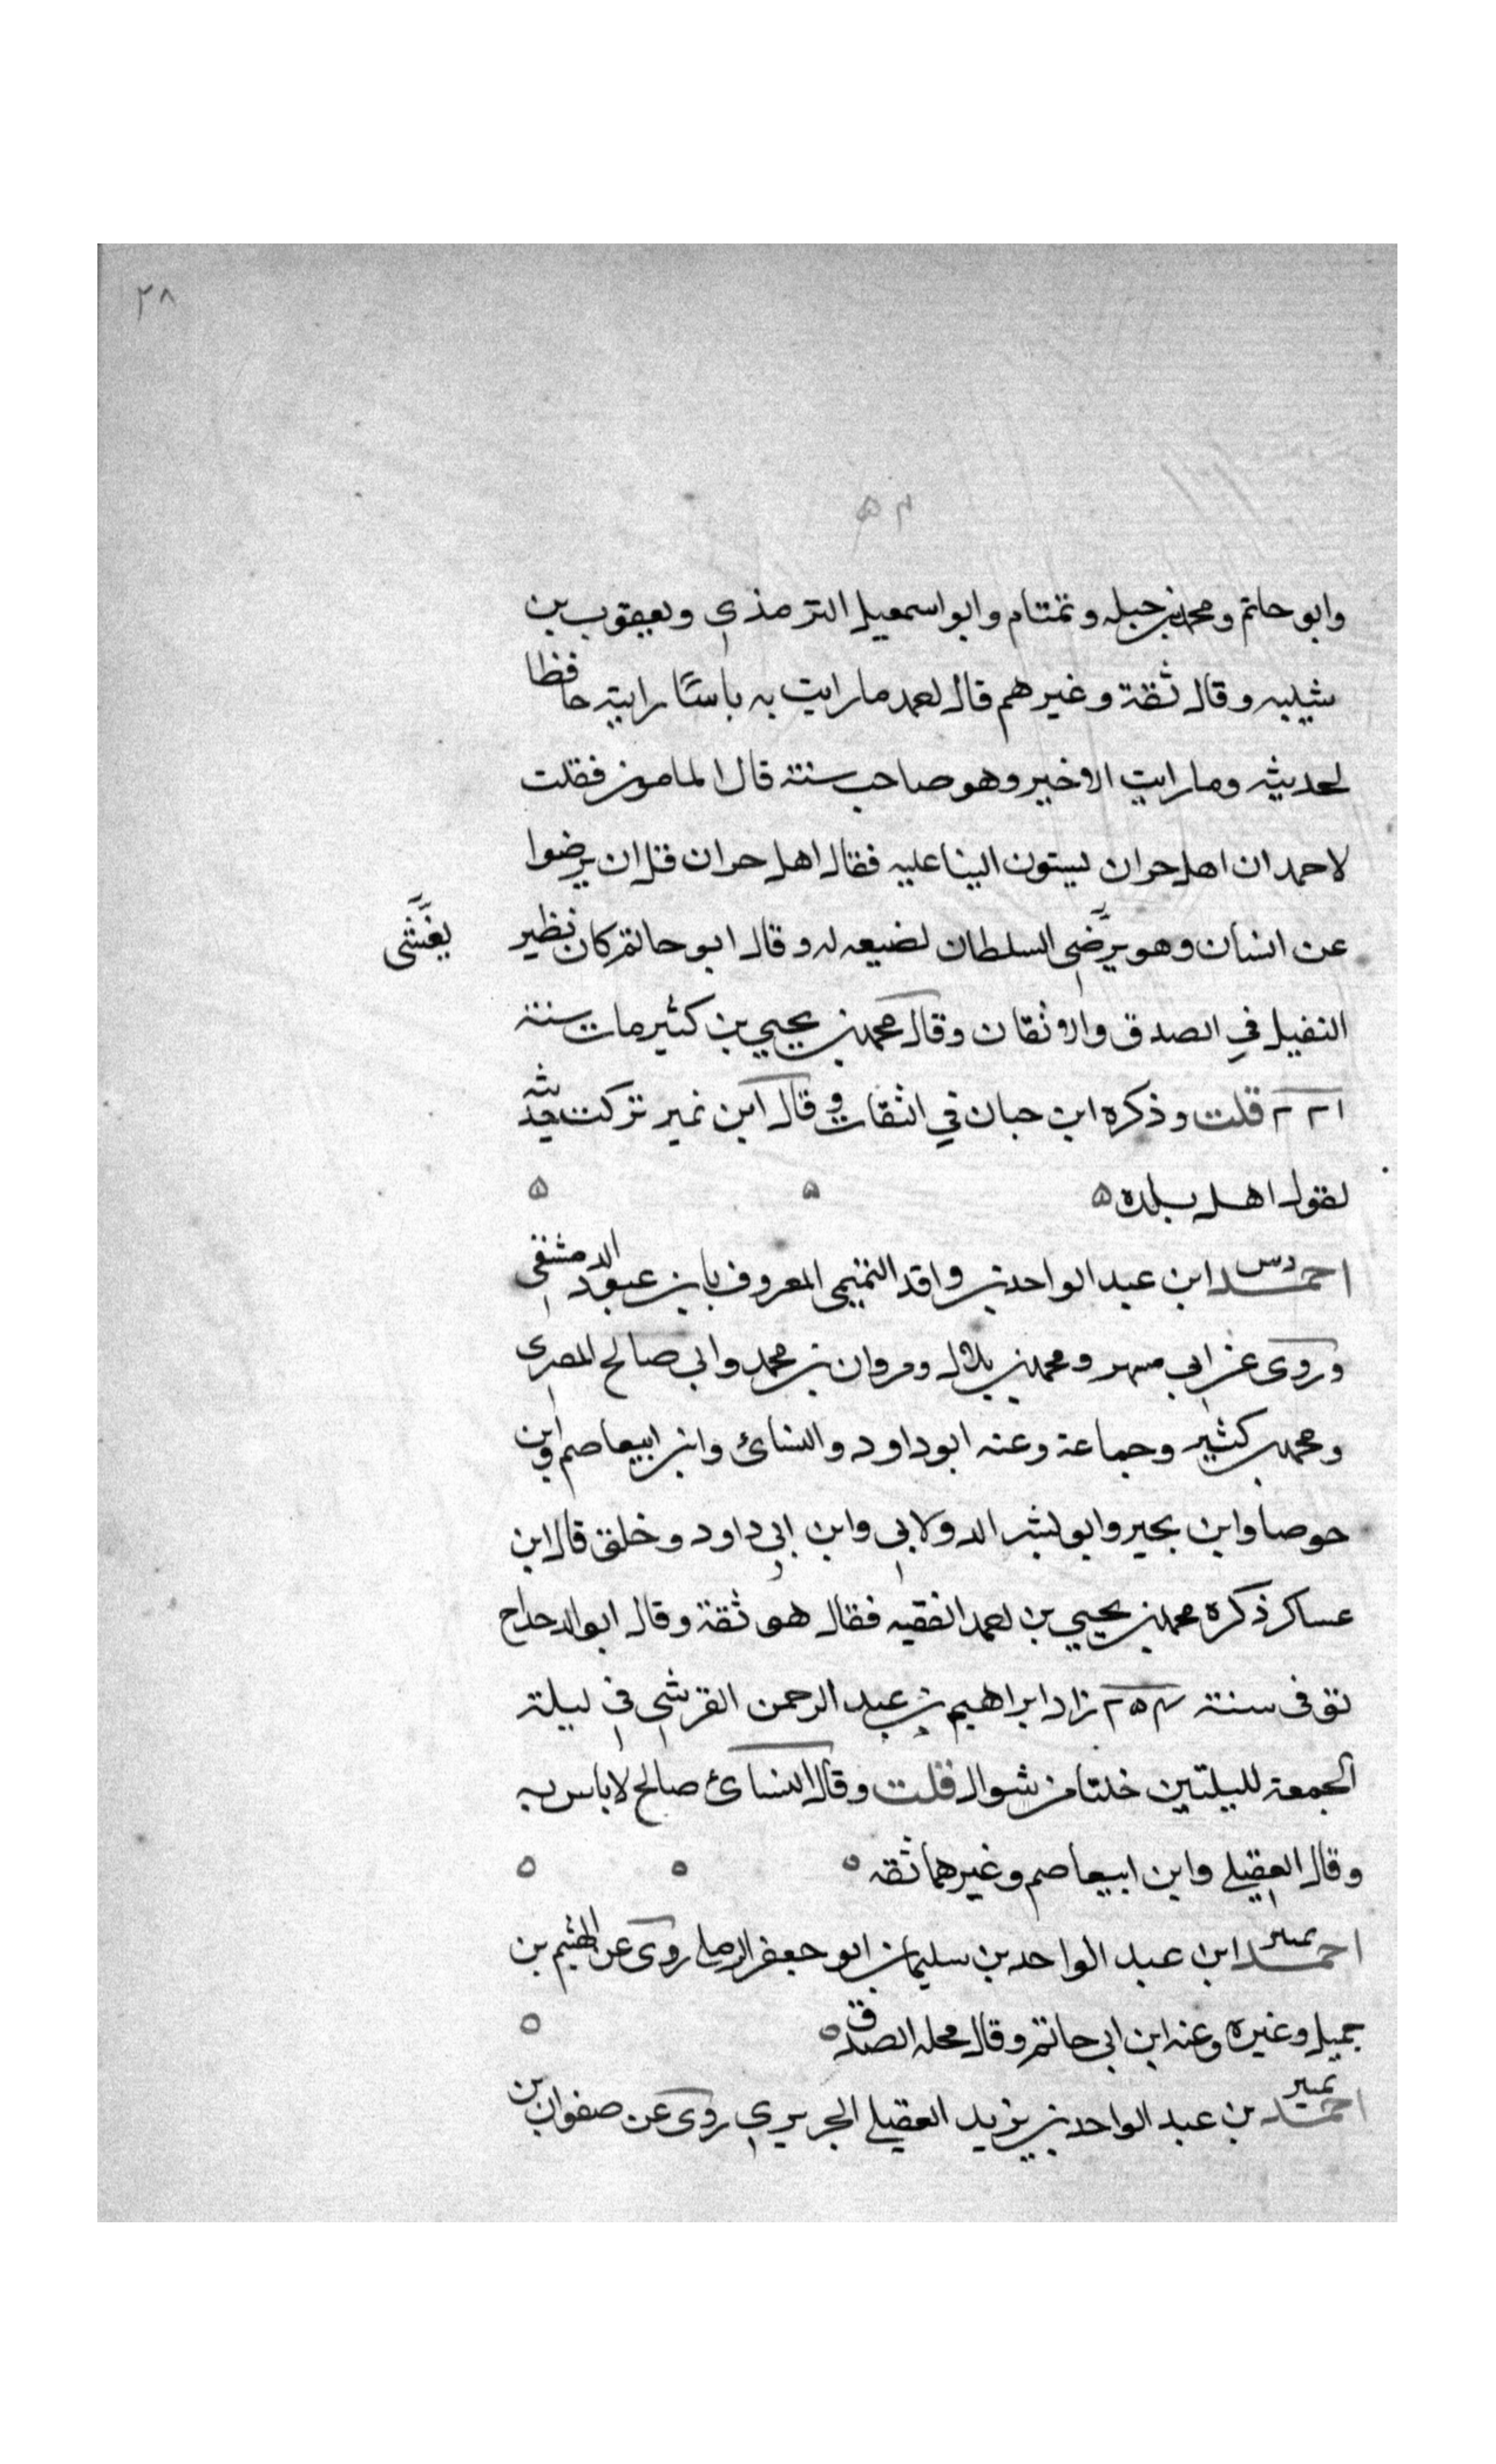 ٢٨
٥٤
وابو حاتم ومحمد بن جبله وتمتام وابو اسمعيل الترمذي ويعقوب بن
شيبه وقال ثقة وغيرهم قال احمد ما رايت به باسًا رايته حافظا
لحديثه وما رايت الاخير وهو صاحب سنة قال المامون فقلت
لاحمد ان اهل حران يسئون الينا عليه فقال اهل حران قل ان يرضوا
عن انسان وهو يرضى السلطان لضيعه له وقال ابو حاتم كان نظير
يغشى
النفيل في الصدق والاتقان وقال محمد بن يحيي بن كثير مات سنة
٢٢١ قلت وذكره ابن حبان في الثقات وقال ابن نمير تركت حديثه
لقول اهل بلده ه ه ه
احمد ابن عبد الواحد بن واقد التميمي المعروف بابن عبود الدمشقي
دس
وروى عن ابي مسهر ومحمد بن بلال ومروان بن محمد وابي صالح المصري
ومحمد بن كثير وجماعة وعنه ابو داود والنسائ وابن ابيعاصم وابن
حوصا وابن بجير وابو بشر الدولابي وابن ابي داود وخلق قال ابن
عساكر ذكره محمد بن يحيي بن احمد الفقيه فقال هو ثقة وقال ابو الدحداح
توفى سنة ٢٥٤ زاد ابراهيم بن عبد الرحمن القرشي في ليلة
الجمعة لليلتين خلتا من شوال قلت وقال النسائ صالح لا باس به
وقال العقيلي وابن ابيعاصم وغيرهما ثقه ه ه ه
احمد ابن عبد الواحد بن سليمان ابو جعفر الرملي روى عن الهثيم بن
تمييز
جميل وغيره وعنه ابن ابي حاتم وقال محله الصدق ه ه
احمد بن عبد الواحد بن يزيد العقيلي الجريري روى عن صفوان بن
تمييز